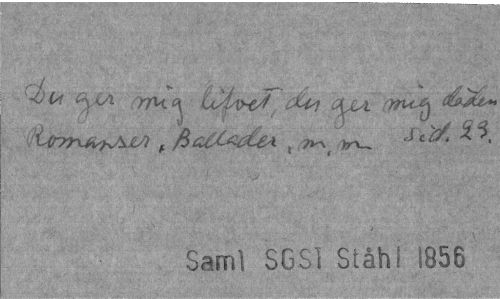 Du ger mig lifvet, du ger mig döden
Romanser, Ballader, m, m Sid. 23.
Saml SGSI Ståhl 1856